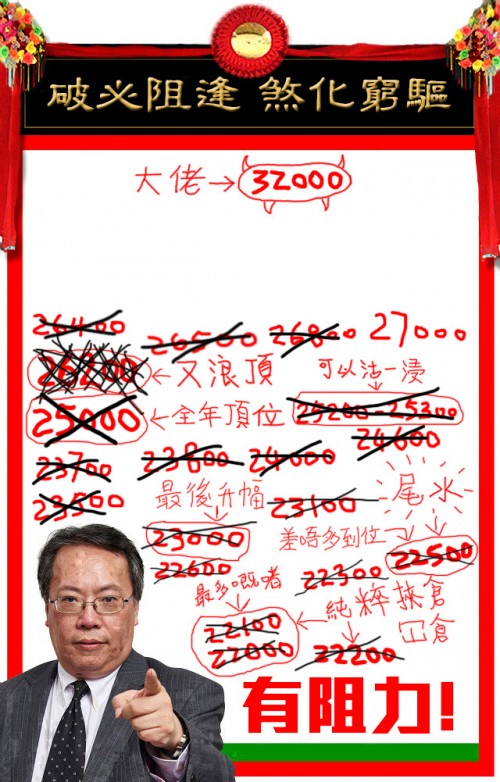 驅窮化煞 逢阻必破
大佬→32000
26400 26500 26800 27000
←又浪頂 可以沽一浸
25000 ←全年頂位 25200-25300
24600
23700 23800 24000
最後升幅 23100 尾水
23500
23000 差唔多到位→ 22500
22600 22300
最多嘅啫
22100 ← 純粹挾倉
22000 22200
有阻力!